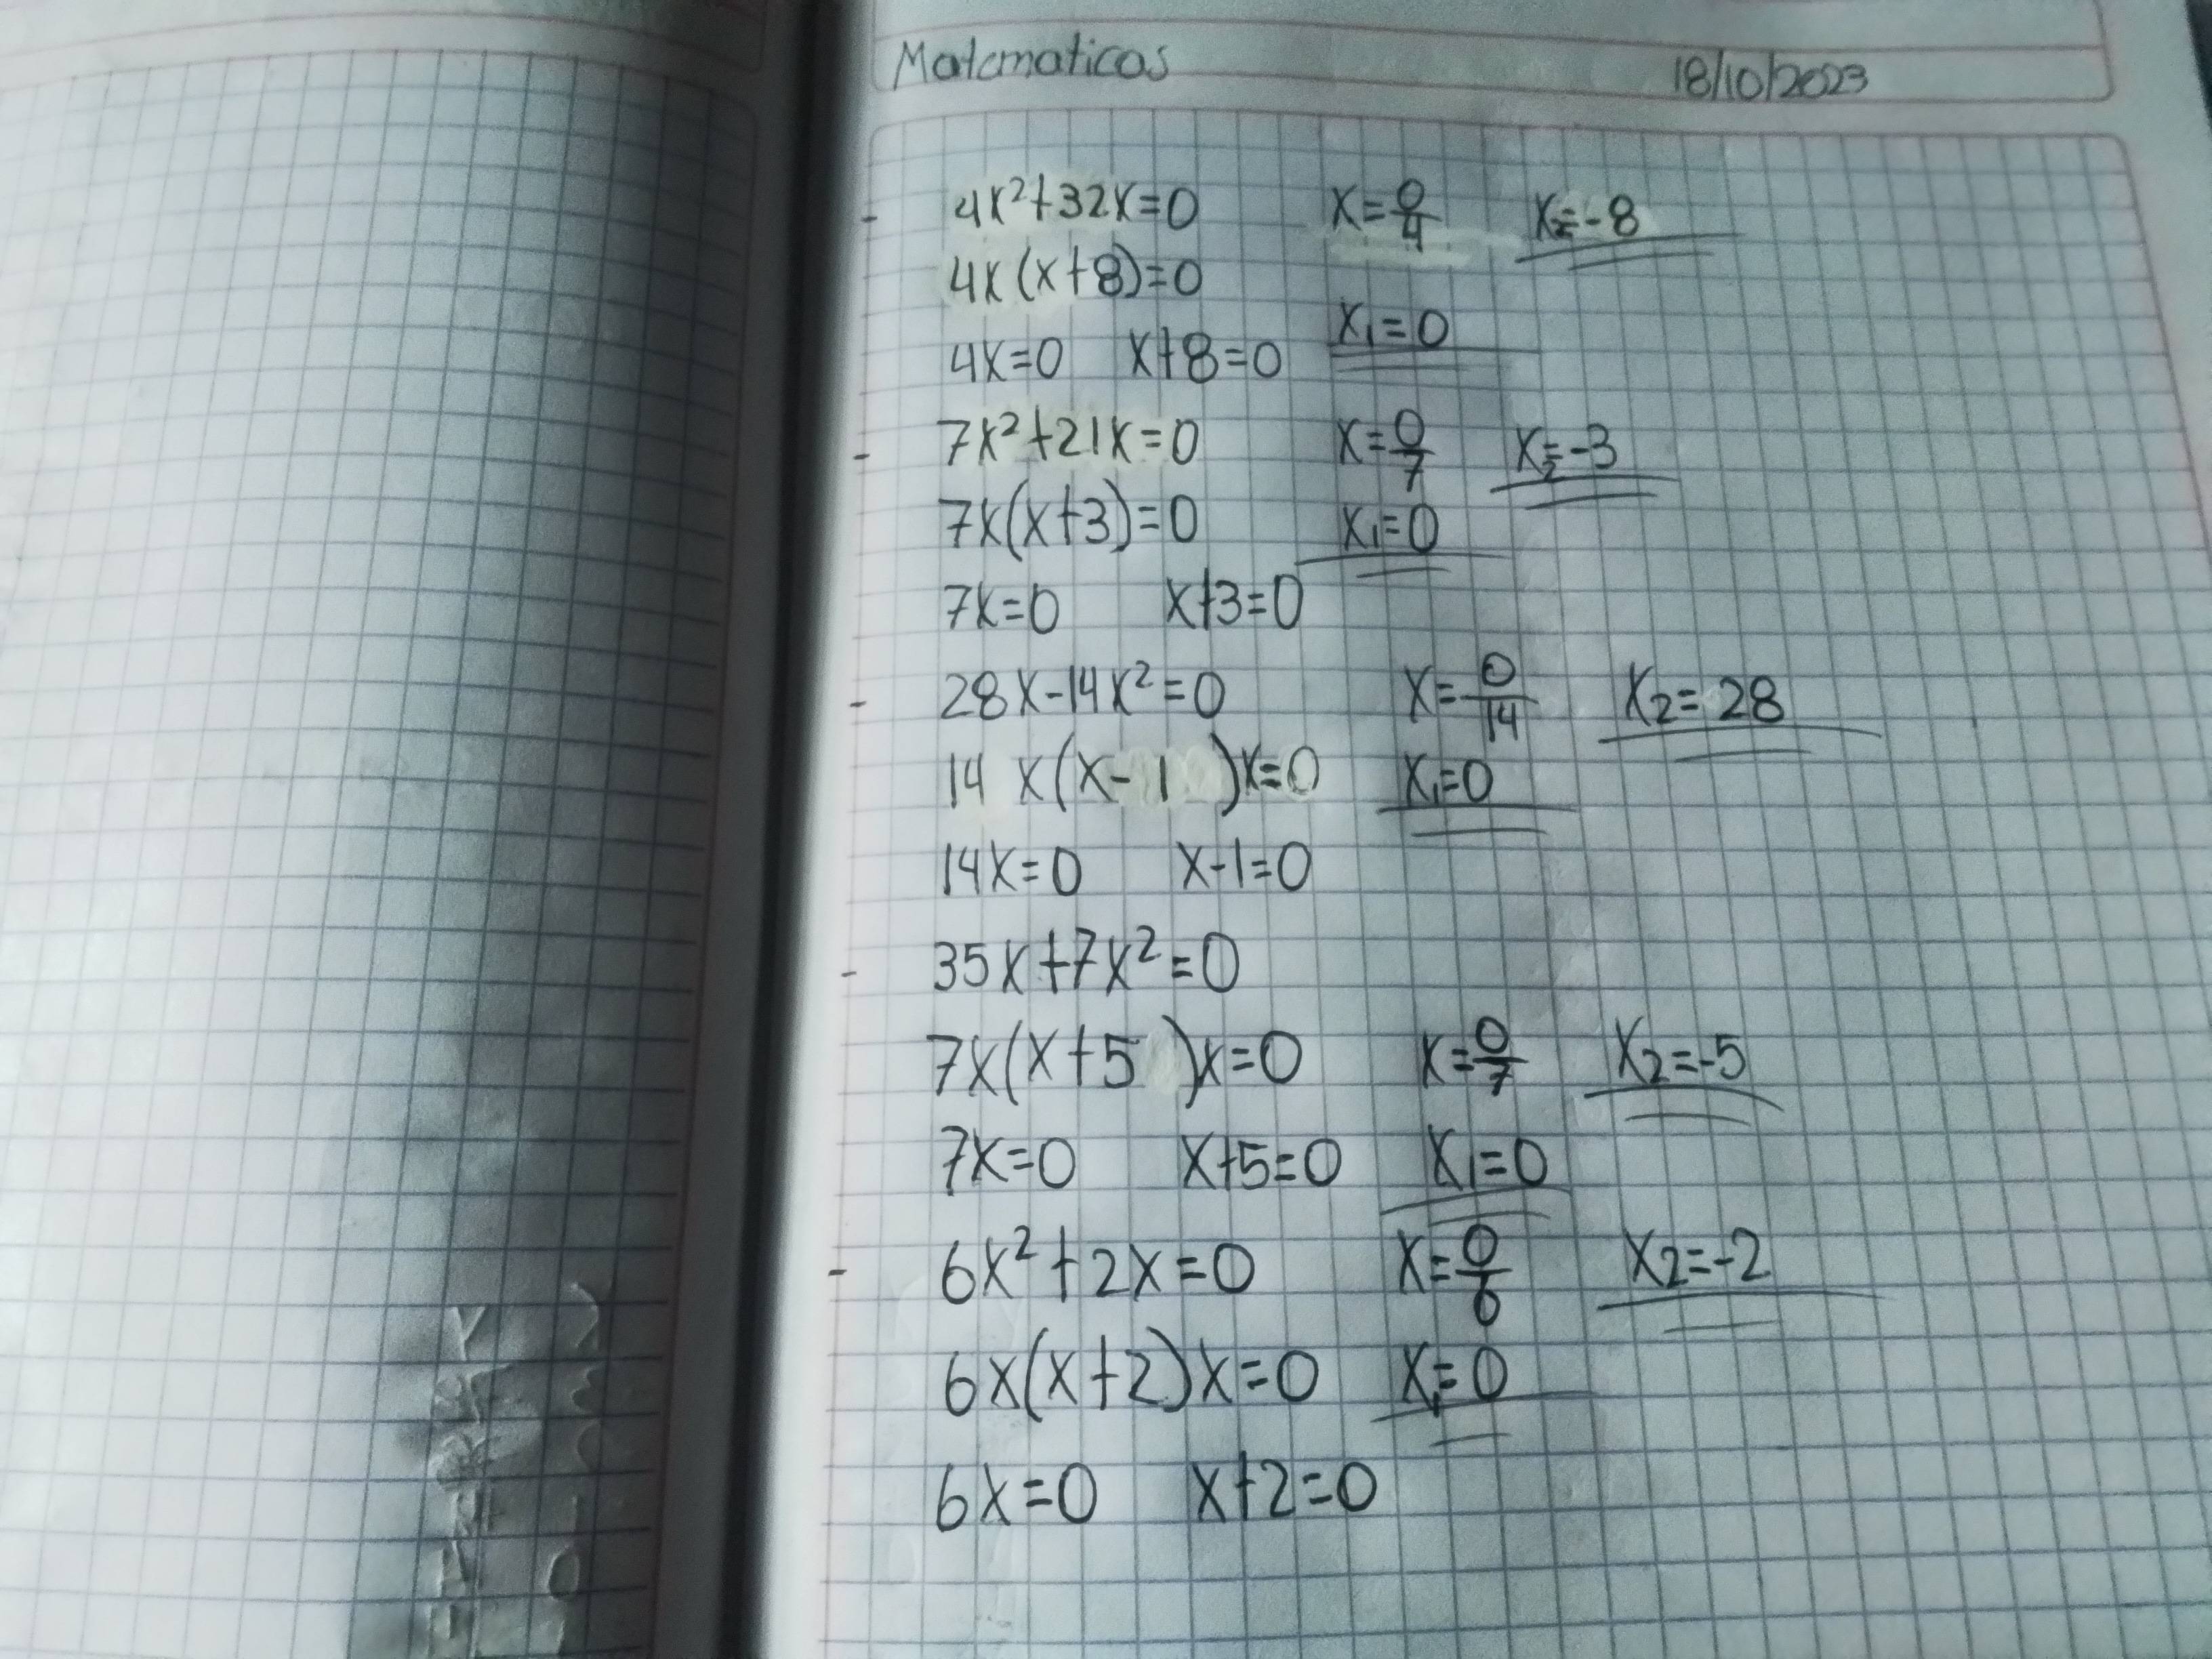 Matematicas 18/10/2023
- 4x²+32x=0 x=0/4 x₂=-8
4x(x+8)=0
x₁=0
4x=0 x+8=0
- 7x²+21x=0 x=0/7 x₂=-3
7x(x+3)=0 x₁=0
7x=0 x+3=0
- 28x-14x²=0 x=0/14 x₂=28
14 x(x-1 )x=0 x₁=0
14x=0 x-1=0
- 35x+7x²=0
7x(x+5 )x=0 x=0/7 x₂=-5
7x=0 x+5=0 x₁=0
- 6x²+2x=0 x=0/6 x₂=-2
6x(x+2)x=0 x₁=0
6x=0 x+2=0